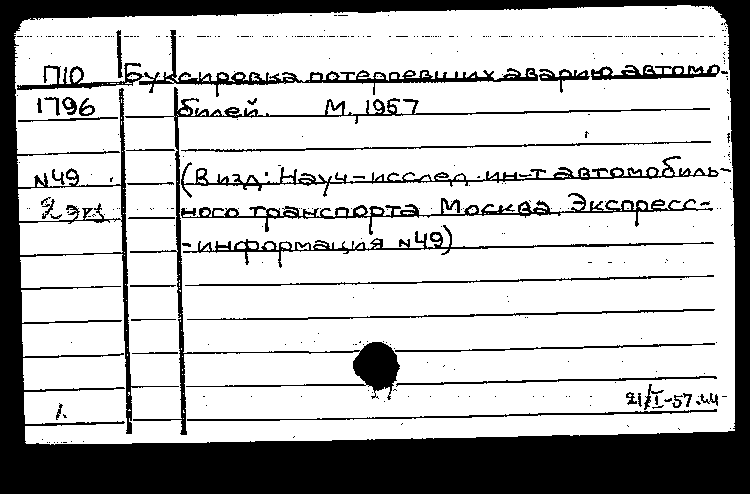 П10 Буксировка потерпевших аварию автомо-
1796 билей. М., 1957
N49 (В изд: Науч-исслед. ин-т автомобиль-
2 экз ного транспорта. Москва. Экспресс-
-информация N49)
1.
21/I-57